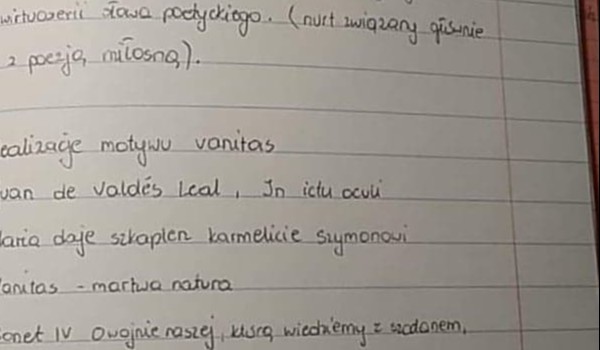 wirtuozerii słowa poetyckiego. (nurt związany głównie
z poezją miłosną).
ealizacje motywu vanitas
uan de Valdés Leal, In ictu oculi
aria daje szkaplerz karmelicie Szymonowi
anitas - martwa natura
onet IV O wojnie naszej, którą wiedziemy z szatanem,